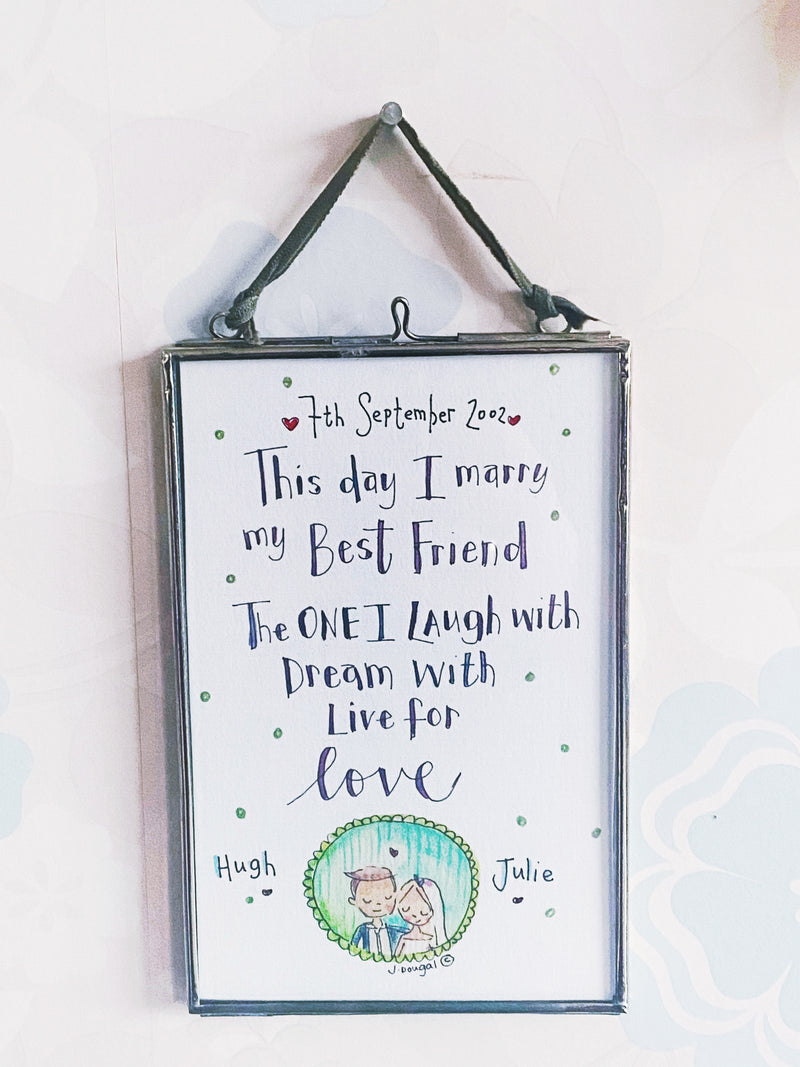 7th September 2002
This day I marry
my Best Friend
The ONE I Laugh with
Dream with
Live for
love
Hugh
Julie
J.Dougal ©